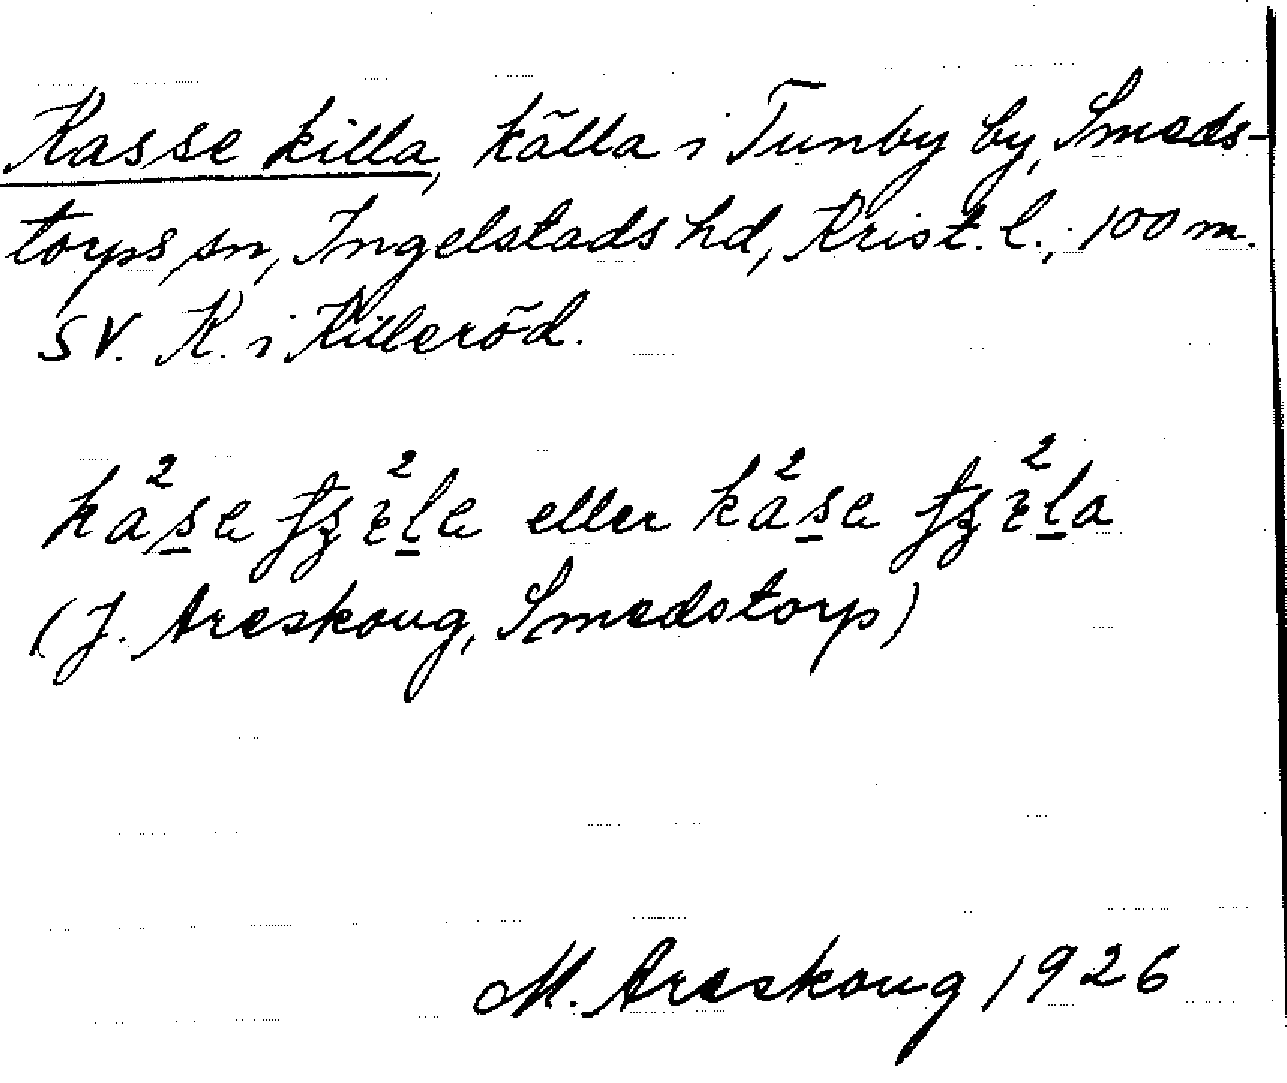 Kasse killa, källa i Tunby by, Smeds-
torps sn, Ingelstads hd, Krist. l., 100 m.
SV. K. i Killeröd.
eller
(J. Areskoug, Smedstorp)
M. Areskoug 1926